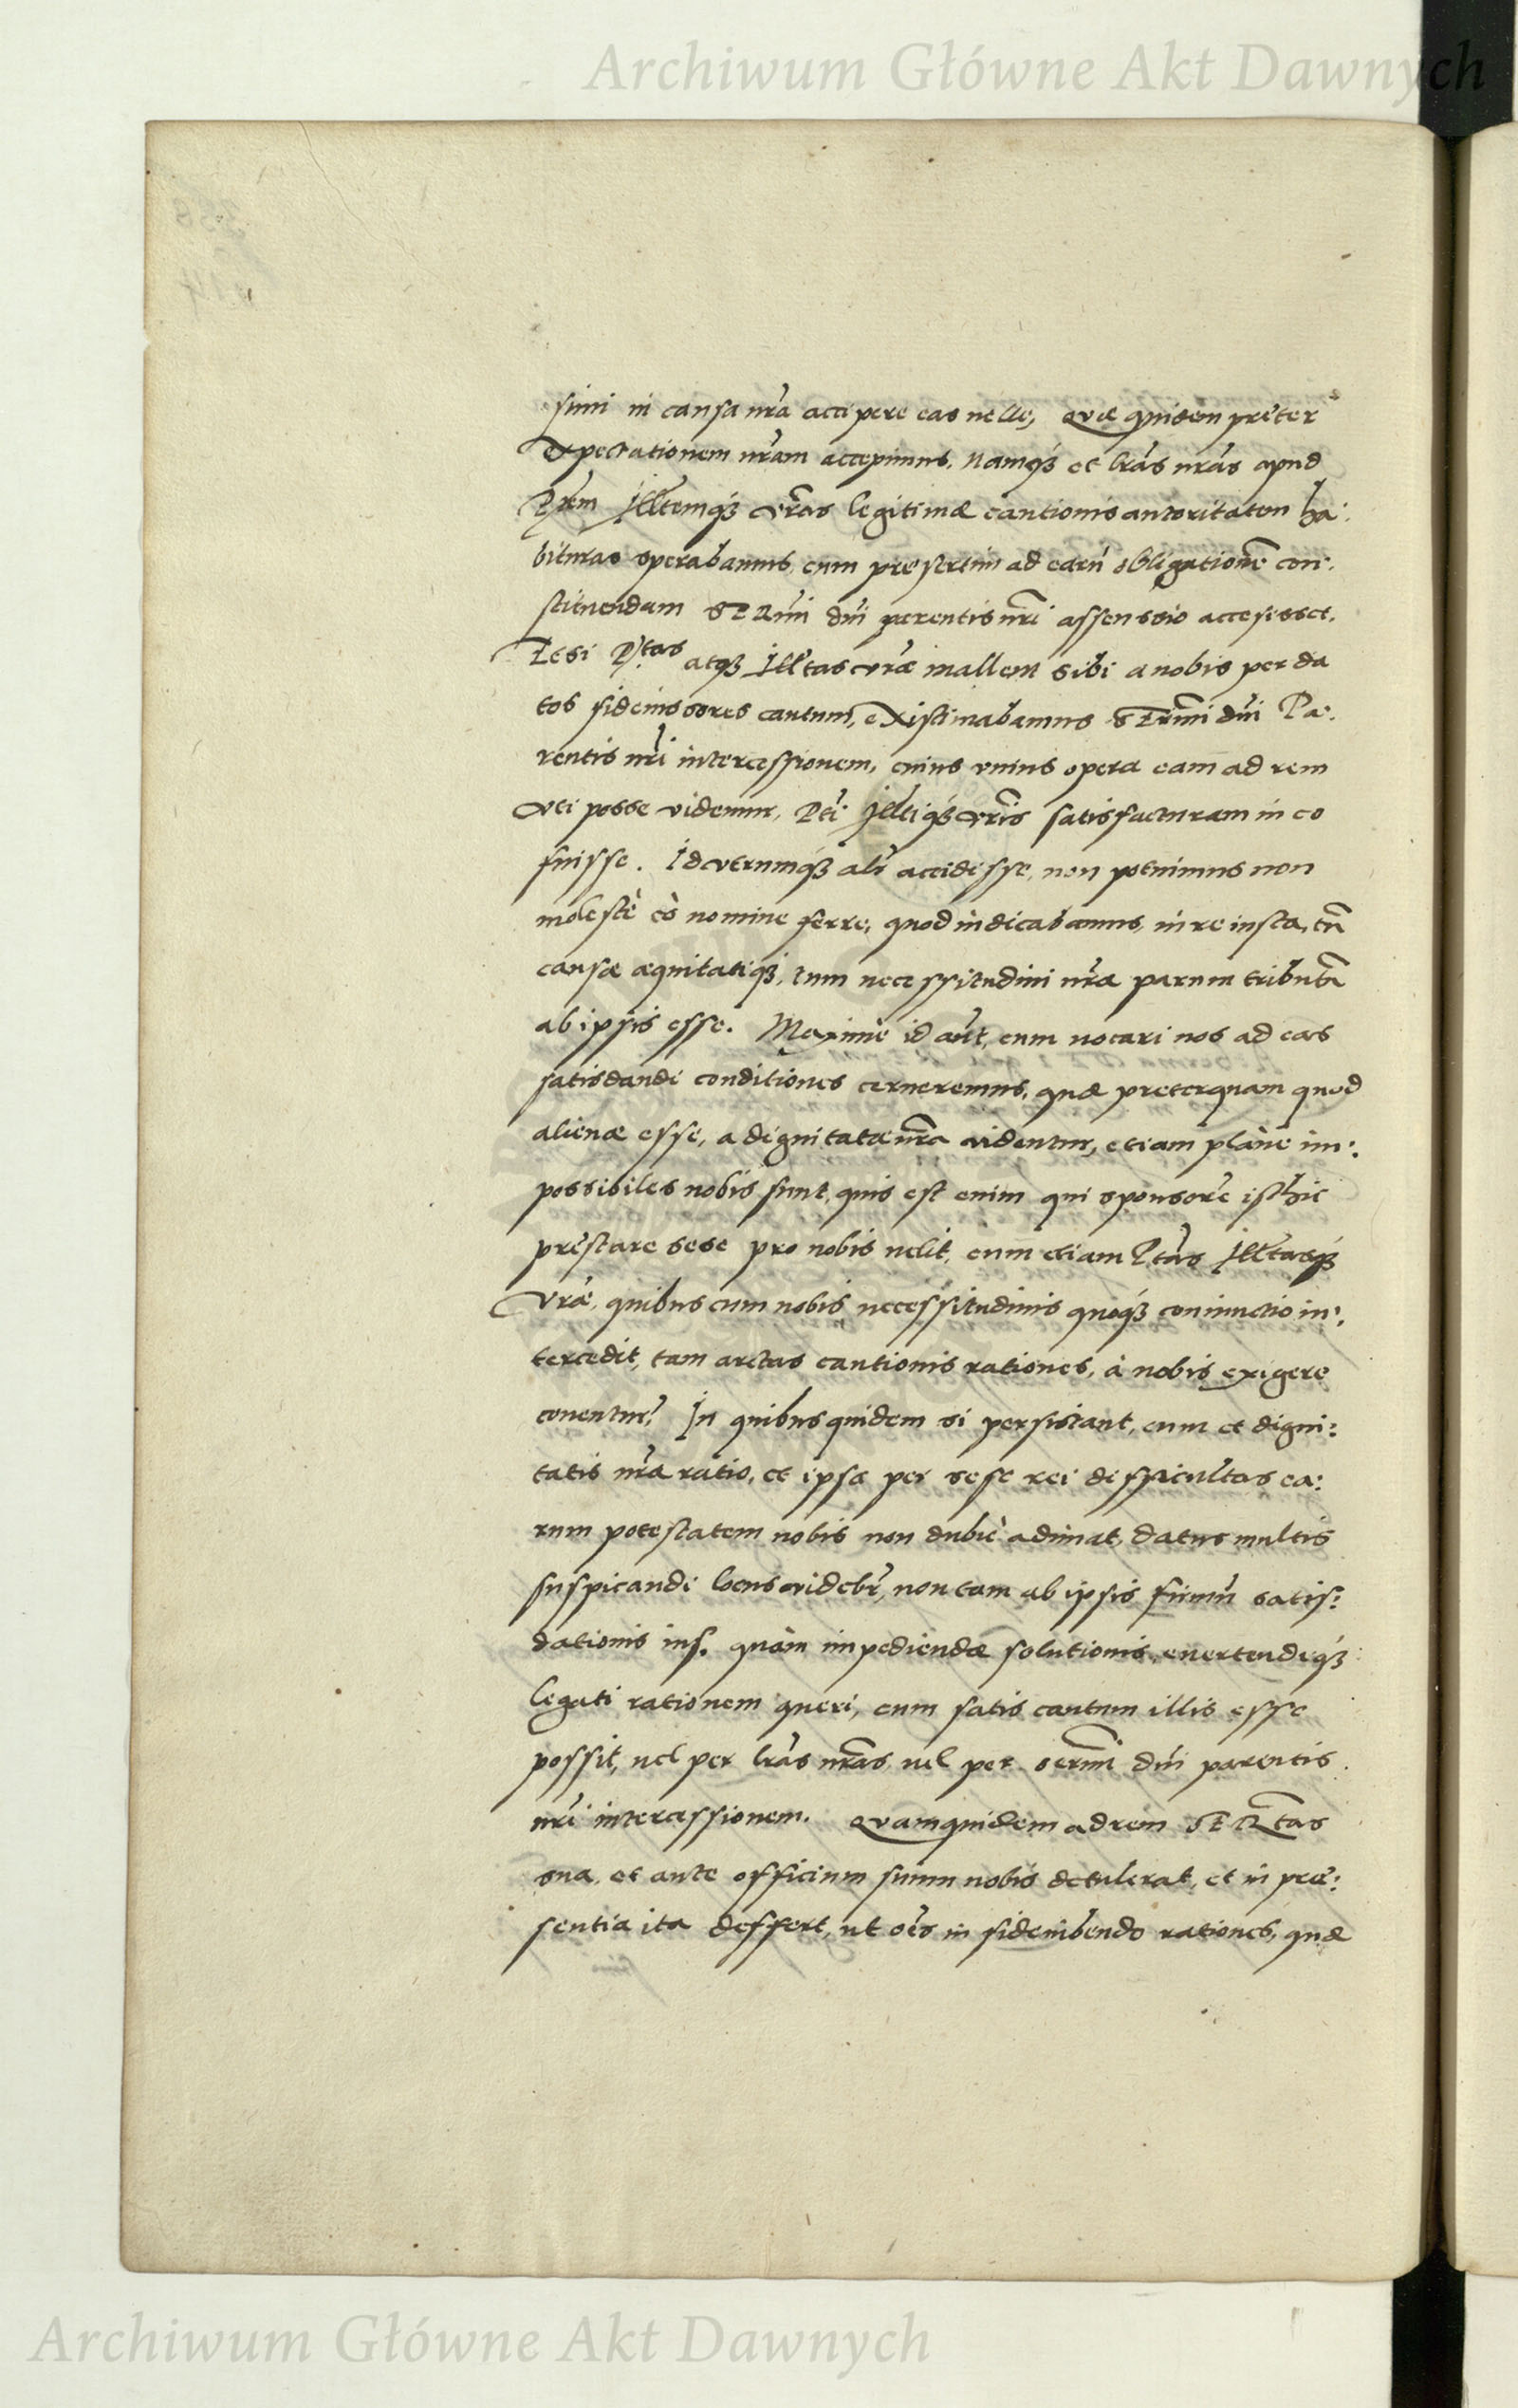 Archiwum Główne Akt Dawnych
simi in causa nrã accipere eas nelle, Quæ quidem preter
expectationem nrãm accepimus. Namq3 et lrãs nrãs apud
Ptem Illtemq3 vrãs legitimæ cautionis autoritatem ha:
bituras sperabamus, cum presertim ad earũ obligationẽ con:
stituendam SERmi dñi parentis nrĩ assenssio accesisset.
Etsi Ptas atq3 Illtas vræ mallent sibi a nobis per da
tos fideiussores cautum, existimabamus SErmi dñi Pa:
rentis nrĩ intercessionem, cuius unius opera eam ad rem
vti posse videmur, Pti Illtiq3 vrĩs satisfacturam in eo
fuisse. Id utrumq3 alr accidisse, non potuimus non
molestè eò nomine ferre, quod iudicabamus, in re iusta, tũ
causæ æquitatiq3, tum necessitudini nræ parum tributũ
ab ipsis esse. Maximè id aũt, cum vocari nos ad eas
satisdandi conditiones cerneremus, quæ preterquam quod
alienæ esse, a dignitate nrã videntur, etiam planè im:
possibiles nobis sunt, quis est enim qui sponsorẽ isthic
prestare sese pro nobis uelit, cum etiam Ptas Illtasq3
Vræ, quibus cum nobis necessitudinis quoq3 coniunctio in:
tercedit, tam arctas cautionis rationes, à nobis exigere
conentur? In quibus quidem si persistant, cum et digni:
tatis nræ ratio, et ipsa per sese rei difficultas ea:
rum potestatem nobis non dubiè adimat, datus multis
suspicandi locus videbr, non tam ab ipsis firmũ satis:
dationis ius, quàm impediendæ solutionis, euertendiq3
legati rationem queri, cum satis cautum illis esse
possit, uel per lrãs nrãs, uel per sermi dñi parentis
nrĩ intercessionem. Quam quidem ad rem SERtas
sua, et ante officium suum nobis detulerat, et in præ:
sentia ita deffert, ut oẽs in fideiubendo rationes, quæ
Archiwum Główne Akt Dawnych